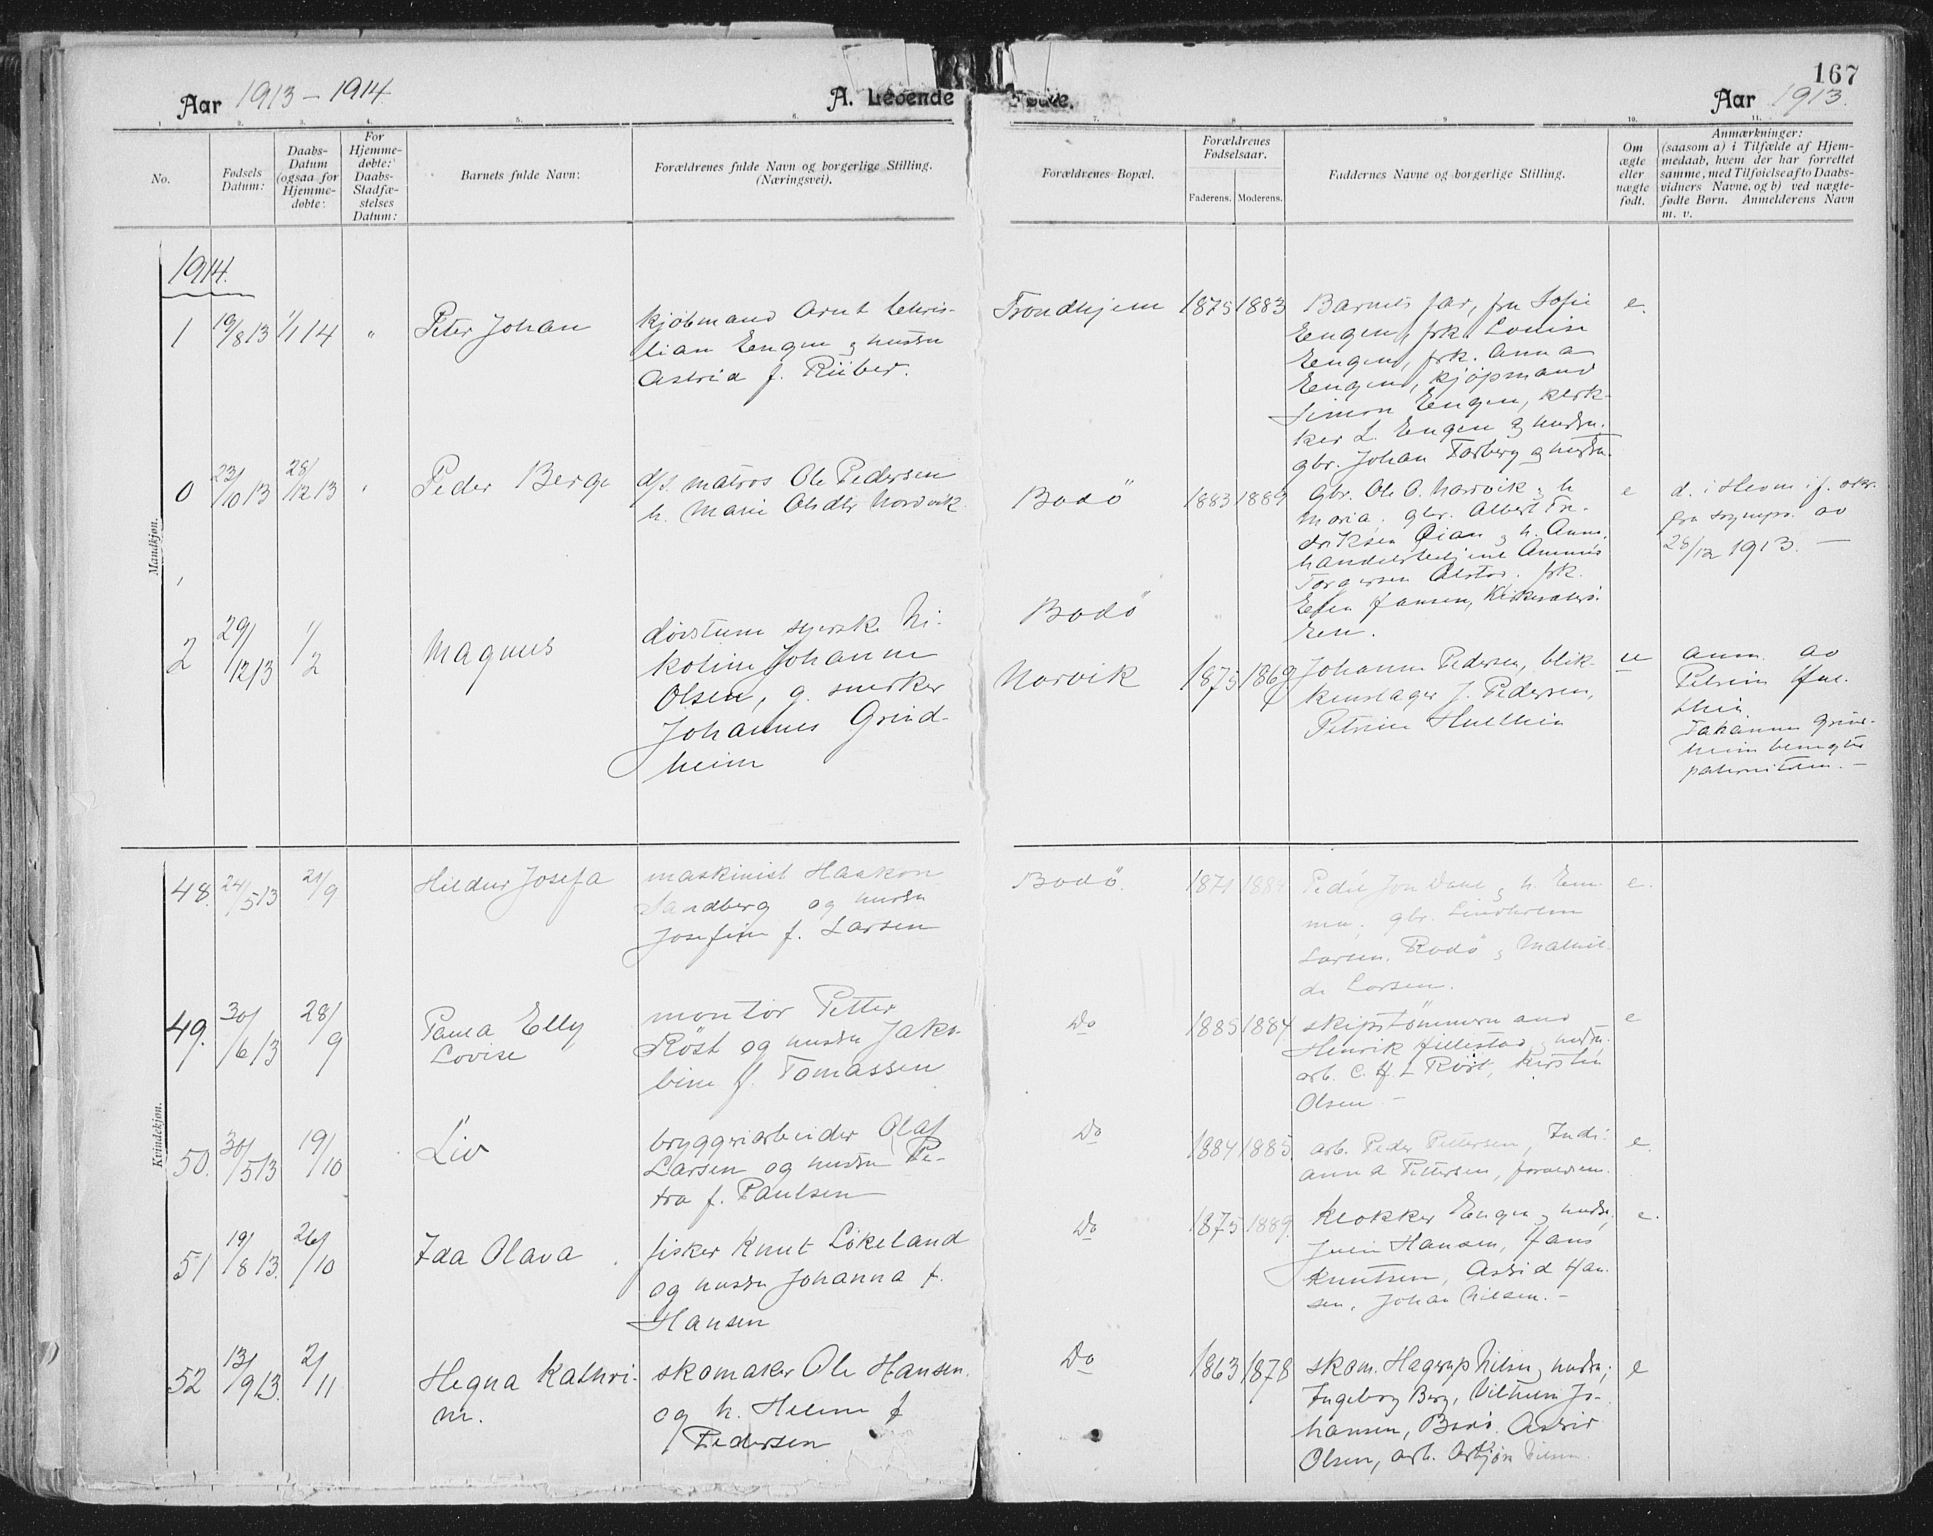 167
Aar 1913-1914
A. Levende
Fødte.
Aar 1913.
1. 2. 3. 4. 5. 6. 7. 8 9 10. 11.
No.
Fødsels Datum:
Daabs-Datum (ogsaa for Hjemme-døbte:
For Hjemme-døbte: Daabs-Stadfæ-stelses Datum:
Barnets fulde Navn:
Forældrenes fulde Navn og borgerlige Stilling.
(Næringsvei).
Forældrenes Bopæl.
Forældrenes Fødselsaar.
Faderens. Moderens.
Faddernes Navne og borgerlige Stilling.
Om ægte eller uægte født.
Anmærkninger:
(saasom a) i Tilfælde af Hjem-
medaab, hvem der har forrettet
samme, med Tilføielse af to Daabs-
vidners Navne, og b) ved uægte-
fødte Børn. Anmelderens Navn
m. v.
Mandkjøn.
1914.
1 19/8 13 1/1 14 " Peter Johan
kjøbmand Arnt Chris-
tian Engen og hustru
Astrid f. Rüber.
Trondhjem 1875 1883
Barnets far, fru Sofie
Engen, frk. Louise
Engen, frk. Anna
Engen, kjøpmand
Simon Engen, klok-
ker L. Engen og hustru.
gbr. Johan Forberg og hustru.
e.
0 23/10 13 28/12 13 " Peder Berge
d/s. matros Ole Pedersen
h. Marie Olsdtr Norvik.
Bodö 1883 1889
gbr. Ole O. Norvik og h
Maria. gbr. Albert Fre-
driksen Oian og h. Anna,
handelsbetjent
Torgersen Alstad. frk.
Jansen,
e
d. i Hevn
av
28/12 1913. —
2 29/12 13 1/2 Magnus
døvstum syerske Ni-
koline Johanne
Olsen, g. snekker
Johannes Grind-
heim
Bodö "
Narvik 1875 1869
Johanne Pedersen, blik-
kenslager J. Pedersen,
Petrine
u
anm. av
Petrine
Johannes Grind-
heim benegter
paterniteten. —
Kvindekjøn.
48. 24/5 13 21/9 Hildur Josefa
maskinist Haakon
Sandberg og hustru
Josefine f. Larsen
Bodö. 1871 1884
h. Em-
ma, gbr.
Larsen, Rodö og Mathil-
de Larsen.
e.
49. 30/6 13 28/9 Paula Elly
Lovise
montör Petter
Röst og hustru Jako-
bine f. Tomassen
Do 1885 1884.
skipstömmermand
Henrik Jillestad og hustru.
arb. C. H. L Röst, Kirstin
Olsen —
e
50. 30/5 13 19/10 Liv
bryggeriarbeider Olaf
Larsen og hustru Pe-
tra f. Paulsen
Do 1884 1885
arb. Peder Pettersen, Indi-
anna Pettersen, forældrene.
e.
51 19/8 13. 26/10 Ida Olava
fisker Knut Lökeland
og hustru Johanna f.
Hansen
Do 1875 1889.
Klokker Engen og hustru,
Hansen, Hans
Knutsen, Astrid Han-
sen, Johan Nilsen. —
e.
52 13/9 13. 2/11 Hegna Kathri-
ne.
skomaker Ole Hansen.
og h. Helene f
Pedersen
Do 1863 1878
skom. Hagerup Nilsen og hustru;
Ingeborg Berg, Vilhelm Jo-
hansen, Bodö. Astrid
Olsen, arb. Nilsen.
e